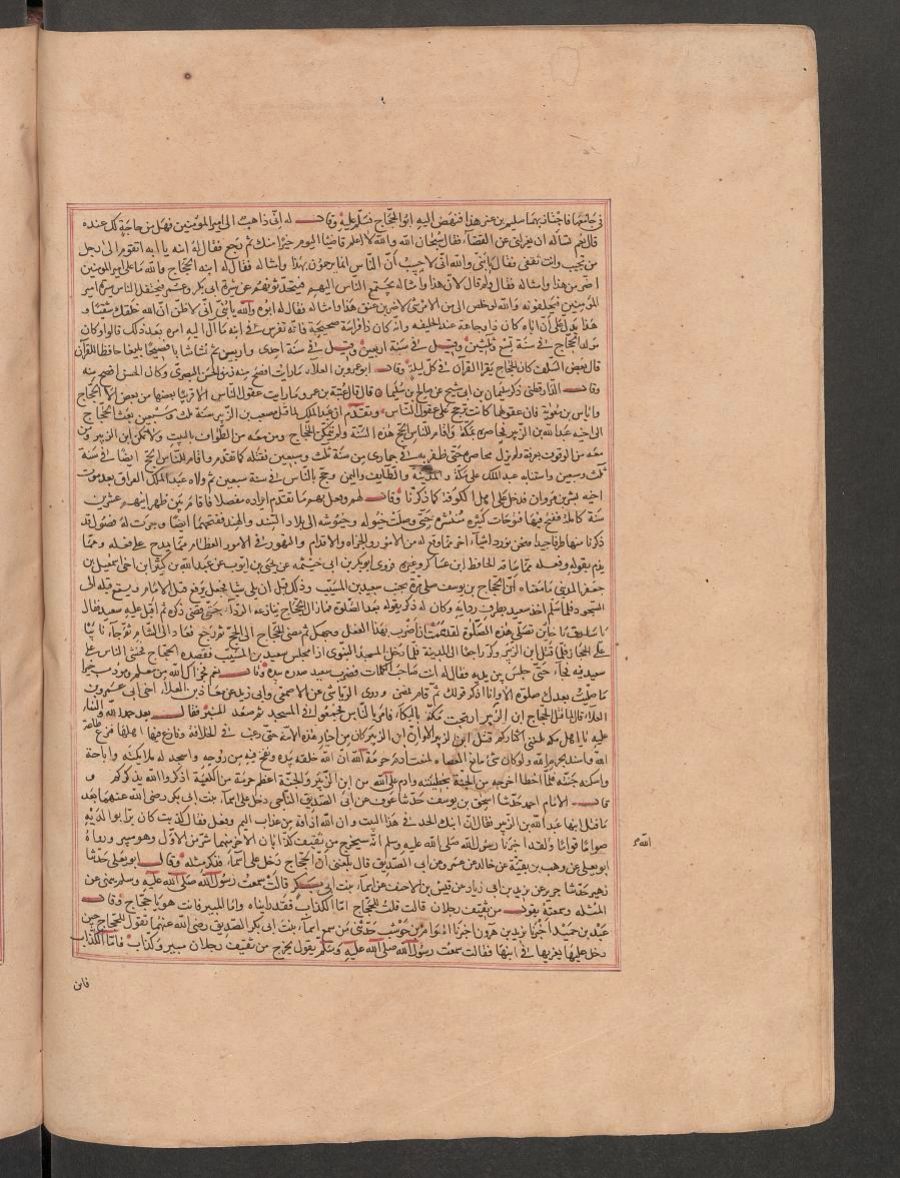 في جامعها فاجتاز بهما سليم بن عنز هذا فنهض اليه ابو الحجاج فسلم عليه وقال له اني ذاهب الى امير المؤمنين فهل من حاجة لك عنده
قال نعم تساله ان يعزلني عن القضاء فقال سبحان الله والله لا اعلم قاضيا اليوم خيرا منك ثم رجع فقال له ابنه يا ابه اتقوم الى رجل
من تجيب وانت ثقفي فقال يا بني والله اني لاحسب ان الناس انما يرحمون بهذا وامثاله فقال له ابنه الحجاج والله ما على امير المؤمنين
اضر من هذا وامثاله فقال ولم قال لان هذا وامثاله يجتمع الناس اليهم فيحدثونهم عن سيرة ابي بكر وعمر فيحتقر الناس سيرة امير
المؤمنين فيخلعونه والله لو خلص الي من الامر شي لاضربن عنق هذا وامثاله فقال له ابوه والله يا بني اني لاظن ان الله خلقك شقيا و
هذا يدل على ان اباه كان ذا وجاهة عند الخليفة وانه كان ذا فراسة صحيحة فانه تفرس في ابنه ما آل اليه امره بعد ذلك قالوا وكان
مولد الحجاج في سنة تسع وثلثين وقيل في سنة اربعين وقيل في سنة احدى واربعين ثم نشا شابا فصيحا بليغا حافظا للقرآن
قال بعض السلف كان الحجاج يقرا القرآن في كل ليلة وقال ابو عمرو بن العلاء ما رايت افصح منه ومن الحسن البصري وكان الحسن افصح منه
وقال الدارقطني ذكر سليمان بن ابي شيخ عن صالح بن سليمان قال قال عتبة بن عمرو ما رايت عقول الناس الا قريبا بعضها من بعض الا الحجاج
واياس بن معوية فان عقولهما كانت ترجح على عقول الناس وتقدم ان عبد الملك لما قتل مصعب بن الزبير سنة ثلث وسبعين بعث الحجاج
الى اخيه عبد الله بن الزبير فحاصره بمكة واقام للناس الحج هذه السنة ولم يتمكن الحجاج ومن معه من الطواف بالبيت ولا تمكن ابن الزبير ومن
معه من الوقوف بعرفة ولم يزل محاصره حتى ظفر به في جمادى من سنة ثلث وسبعين فقتله كما تقدم واقام للناس الحج ايضا في سنة
ثلث وسبعين واستنابه عبد الملك على مكة والمدينة والطائف واليمن وحج بالناس في سنة سبعين ثم ولاه عبد الملك العراق بعد موت
اخيه بشر بن مروان فدخل الكوفة كما ذكرنا وقال لهم وفعل بهم ما تقدم ايراده مفصلا فاقام بين ظهرانيهم عشرين
سنة كاملة ففتح فيها فتوحات كثيرة منتشرة حتى وصلت خيوله وجيوشه الى بلاد السند والهند ففتحها ايضا وجرت له فصول قد
ذكرنا منها طرفا جيدا ونحن نورد اشياء اخر مما وقع له من الامور والجراه والاقدام والتهور في الامور العظام مما يمدح على فعله ومما
يذم بقوله وفعله مما ساقه الحافظ ابن عساكر وغيره فروى ابو بكر بن ابي خيثمة عن يحيى بن ايوب عن عبد الله بن كثير ابن اخي اسمعيل بن
جعفر المدني ما معناه ان الحجاج بن يوسف صلى مرة بجنب سعيد بن المسيب وذلك قبل ان يلي شيا فجعل يرفع قبل الامام ويقع قبله الى
السجود فلما سلم اخذ سعيد بطرف ردايه وكان له ذكر يقوله بعد الصلوة فما زال الحجاج ينازعه الرداء حتى قضى ذكره ثم اقبل عليه سعيد فقال
يا سارق يا خاين تصلي هذه الصلوة لقد هممت ان اضرب بهذا النعل وجهك ثم مضى الحجاج الى الحج ثم رجع فعاد الى الشام ثم جاء نائبا
على الحجاز فلما قتل ابن الزبير وكر راجعا الى المدينة فلما دخل المسجد النبوي اذا مجلس سعيد بن المسيب فقصده الحجاج فخشى الناس على
سعيد منه فجاء حتى جلس بين يديه فقال له انت صاحب الكلمات فضرب سعيد صدره بيده وقال نعم فجزاك الله من معلم ومودب خيرا
ما صليت بعدك صلوة الا وانا اذكر قولك ثم قام ومضى وروى الرياشي عن الاصمعي وابي زيد عن معاذ بن العلاء اخي ابي عمرو بن
العلاء قال لما قتل الحجاج ابن الزبير ارتجت مكة بالبكاء فامر بالناس فجمعوا في المسجد ثم صعد المنبر فقال بعد حمد الله والثناء
عليه يا اهل مكة بلغني اكباركم قتل ابن الزبير الا وان ابن الزبير كان من اخيار هذه الامة حتى رغب في الخلافة ونازع فيها اهلها فنزع طاعة
الله واستكن بحرم الله ولو كان شي مانع العصاة لمنعت ادم حرمة الله ان الله خلقه بيده ونفخ فيه من روحه واسجد له ملايكته واباحه
واسكنه جنته فلما اخطا اخرجه من الجنة بخطيئته وادم على الله من ابن الزبير والجنة اعظم حرمة من الكعبة اذكروا الله يذكركم و
قال الامام احمد حدثنا اسحق بن يوسف حدثنا عوف عن ابي الصديق الناجي دخل على اسماء بنت ابي بكر رضي الله عنهما بعد
ما قتل ابنها عبد الله بن الزبير فقال ان ابنك الحد في هذا البيت وان الله اذاقه من عذاب اليم وفعل فقال كذبت كان برا بوالديه
صواما قواما ولقد اخبرنا رسول الله صلى الله عليه وسلم انه سيخرج من ثقيف كذابان الاخر منهما اشر من الاول وهو مبير ورواه
ابو يعلى عن وهب بن بقية عن خالد عن عوف عن ابي الصديق قال بلغني ان الحجاج دخل على اسماء فذكر مثله وقال ابو يعلى حدثنا
زهير حدثنا جرير عن يزيد بن ابي زياد عن قيس بن الاحنف عن اسماء بنت ابي بكر قالت سمعت رسول الله صلى الله عليه وسلم ينهى عن
المثلة وسمعته يقول من ثقيف رجلان قالت قلت للحجاج اما الكذاب فقد رايناه واما المبير فانت هو يا حجاج وقال
عبد بن حميد اخبرنا يزيد بن هرون اخبرنا العوام بن حوشب حدثني من سمع اسماء بنت ابي بكر الصديق رضي الله عنهما تقول للحجاج حين
دخل عليها يعزيها في ابنها فقالت سمعت رسول الله صلى الله عليه وسلم يقول يخرج من ثقيف رجلان مبير وكذاب فاما الكذاب
الله
فابن